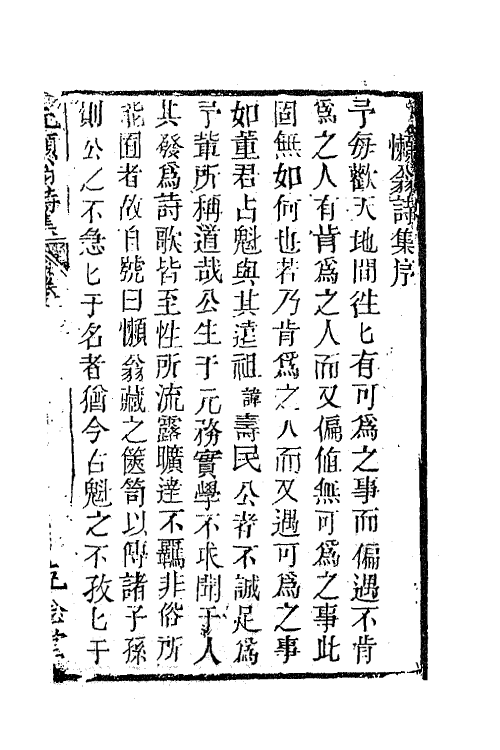 懶翁詩集序
予每歎天地間徃〻有可爲之事而偏遇不肯
爲之人有肯爲之人而又偏值無可爲之事此
固無如何也若乃肯爲之人而又遇可爲之事
如董君占魁與其遠祖諱壽民公者不誠足爲
予輩所稱道哉公生于元務實學不求聞于人
其發爲詩歌皆至性所流露曠達不羈非俗所
能囿者故自號曰懶翁藏之篋笥以傳諸子孫
則公之不急〻于名者猶今占魁之不孜〻于
元懶翁詩集